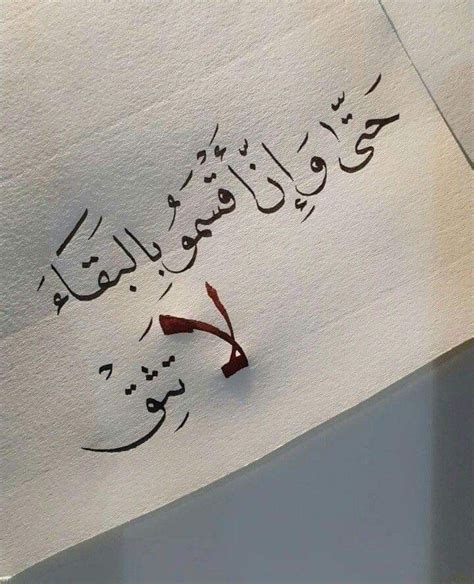 حَتّى وَإِنّ أَقْسَمُو بِالبَقَاءَ
لا تَثِقْ